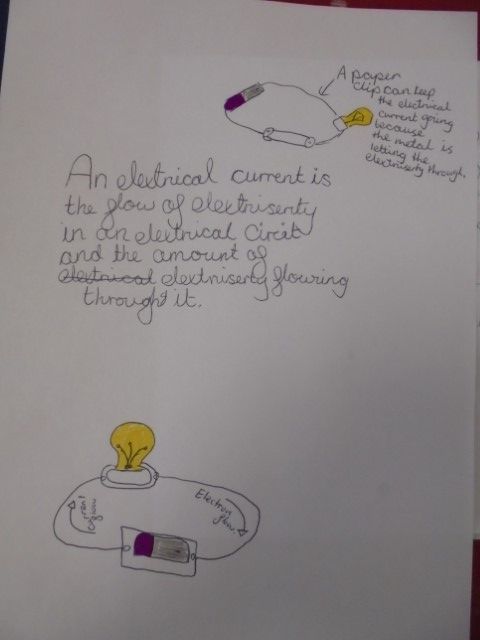 A paper
clip can keep
the electrical
current going
because
the metal is
letting the
electriserty through.
An electrical current is
the flow of electriserity
in an electrical Circit
and the amount of
electrical electriserty flowring
throught it.
Current
Electron
flow.